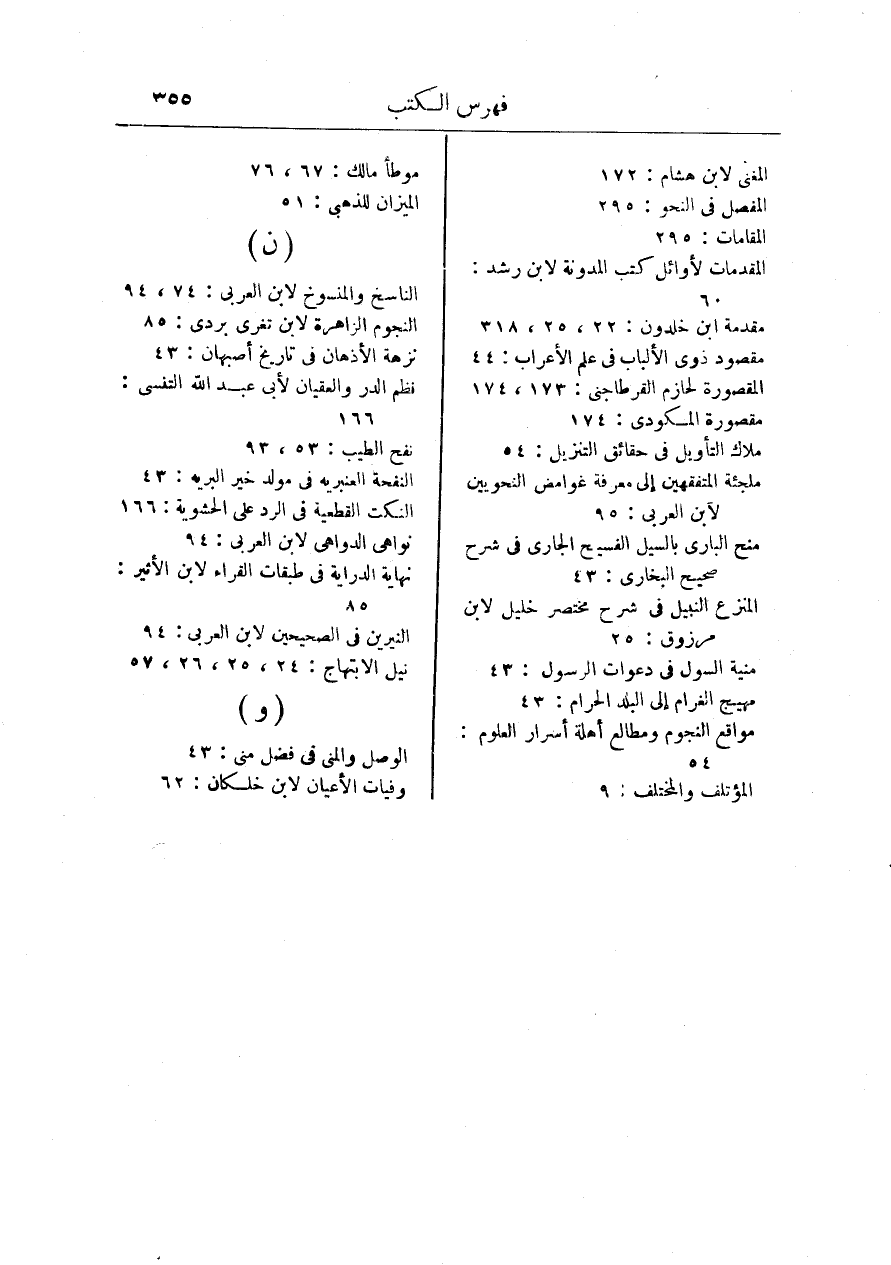 فهرس الكتب ٣٥٥
المغنى لابن هشام : ١٧٢
المفصل فى النحو : ٢٩٥
المقامات : ٢٩٥
المقدمات لأوائل كتب المدونة لابن رشد :
٦٠
مقدمة ابن خلدون : ٢٢ ، ٢٥ ، ٣١٨
مقصود ذوى الألباب فى علم الأعراب : ٤٤
المقصورة لحازم القرطاجنى : ١٧٣ ، ١٧٤
مقصورة المكودى : ١٧٤
ملاك التأويل فى حقائق التنزيل : ٥٤
ملجئة المتفقهين إلى معرفة غوامض النحويين
لآبن العربى : ٩٥
منح البارى بالسيل الفسيح الجارى فى شرح
صحيح البخارى : ٤٣
المنزع النبيل فى شرح مختصر خليل لابن
مرزوق : ٢٥
منية السول فى دعوات الرسول : ٤٣
مهيج الغرام إلى البلد الحرام : ٤٣
مواقع النجوم ومطالع أهلة أسرار العلوم :
٥٤
المؤتلف والمختلف : ٩
موطأ مالك : ٦٧ ، ٧٦
الميزان للذهبى : ٥١
(ن)
الناسخ والمنسوخ لابن العربى : ٧٤ ، ٩٤
النجوم الزاهرة لابن تغرى بردى : ٨٥
نزهة الأذهان فى تاريخ أصبهان : ٤٣
نظم الدر والعقيان لأبى عبد الله التنسى :
١٦٦
نفح الطيب : ٥٣ ، ٩٣
النفحة العنبريه فى مولد خير البريه : ٤٣
النكت القطعية فى الرد على الحشوية : ١٦٦
نواهى الدواهى لابن العربى : ٩٤
نهاية الدراية فى طبقات القراء لابن الأثير :
٨٥
النيرين فى الصحيحين لابن العربى : ٩٤
نيل الابتهاج : ٢٤ ، ٢٥ ، ٢٦ ، ٥٧
(و)
الوصل والمنى فى فضل منى : ٤٣
وفيات الأعيان لابن خلكان : ٦٢